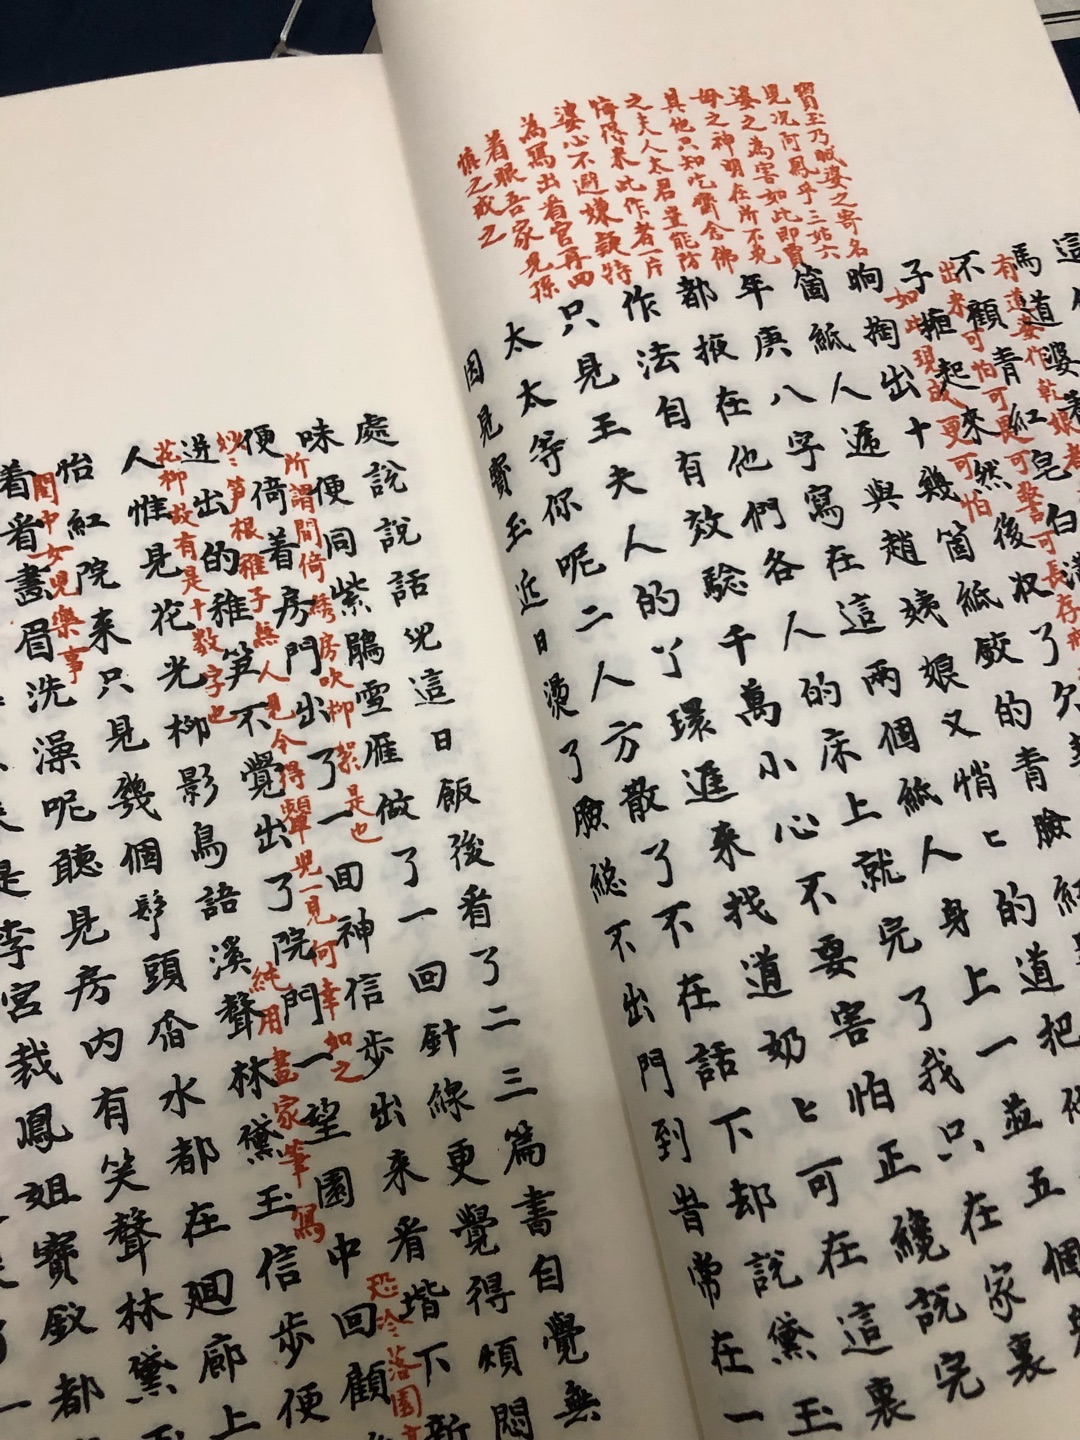 寶玉乃賊婆之寄名
兒况阿鳳乎三姑六
婆之為害如此即賈
母之神明在所不免
其他只知吃齋念佛
之夫人太君豈能防
悔得來此作者一片
婆心不避嫌疑特
為寫出看官再四
着眼吾家兒孫
慎之戒之
這
馬道婆看
有道婆作乾娘者
不顧青紅皂白滿
出來可怕可是可警可長存戒
子掖起來然後收了欠契
如此現成更可怕
晌掏出十幾箇紙鉸的青臉紅
箇紙人遞與趙姨娘又悄々的道把他
年庚八字寫在這兩個紙人身上一並五個鬼
都掖在他們各人的床上就完了我只在家裏
作法自有效驗千萬小心不要害怕正纔說完
只見王夫人的丫環進來找道奶々可在這裏
太太等你呢二人方散了不在話下却說黛玉
因見寶玉近日燙了臉總不出門到昔常在一
處說說話兒這日飯後看了二三篇書自覺無
味便同紫鵑雪雁做了一回針線更覺得煩悶
所謂閒倚綉房吹柳絮是也
便倚着房門出了一回神信步出來看堦下新
妙々笋根稚子無人見今得顰兒一見何幸如之
迸出的稚笋不覺出了院門一望園中回顧
恐冷落園
花柳故有是十數字也
人惟見花光柳影鳥語溪聲林黛玉信步便
純用畫家筆寫
怡紅院來只見幾個頭舀水都在廻廊上
閨中女兒樂事
着看畫眉洗澡呢聽見房內有笑聲林黛玉
是李宮裁鳳姐寶釵都